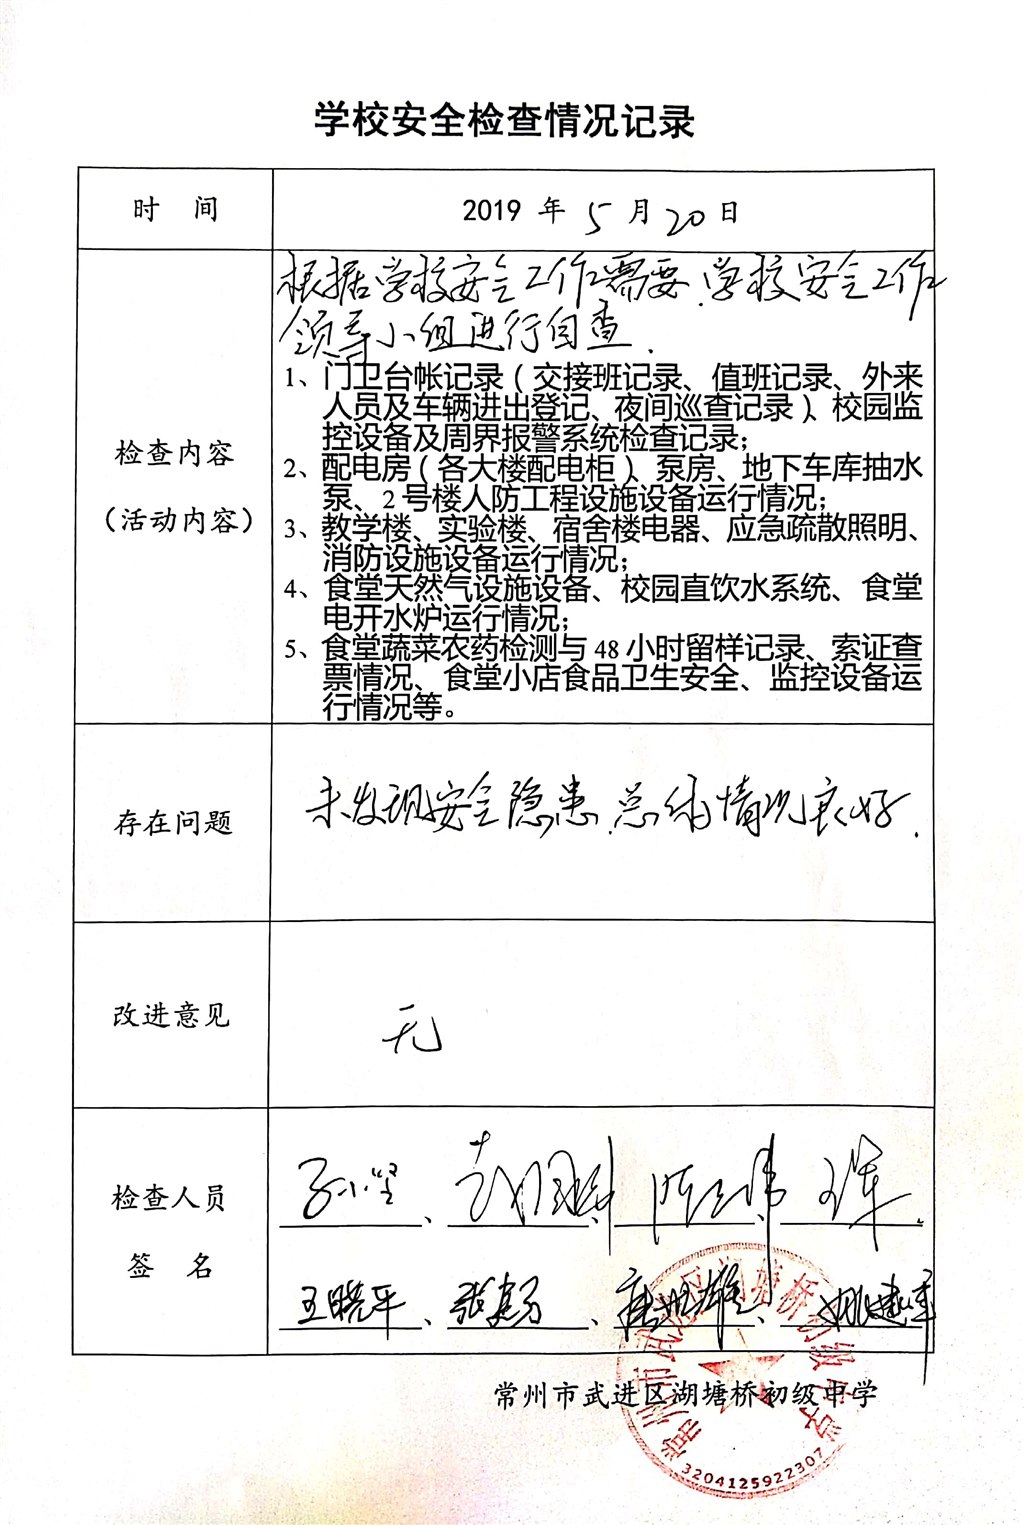 学校安全检查情况记录
时 间
2019 年 5 月 20 日
根据学校安全工作需要,学校安全工作
领导小组进行自查.
检查内容
（活动内容）
1、门卫台帐记录（交接班记录、值班记录、外来
人员及车辆进出登记、夜间巡查记录）、校园监
控设备及周界报警系统检查记录；
2、配电房（各大楼配电柜）、泵房、地下车库抽水
泵、2号楼人防工程设施设备运行情况；
3、教学楼、实验楼、宿舍楼电器、应急疏散照明、
消防设施设备运行情况；
4、食堂天然气设施设备、校园直饮水系统、食堂
电开水炉运行情况；
5、食堂蔬菜农药检测与 48 小时留样记录、索证查
票情况、食堂小店食品卫生安全、监控设备运
行情况等。
存在问题
未发现安全隐患.总体情况良好.
改进意见
无
检查人员
签 名
孙小坚、
王晓平、
常州市武进区湖塘桥初级中学
常州市武进区湖塘桥初级中学
3204125922307